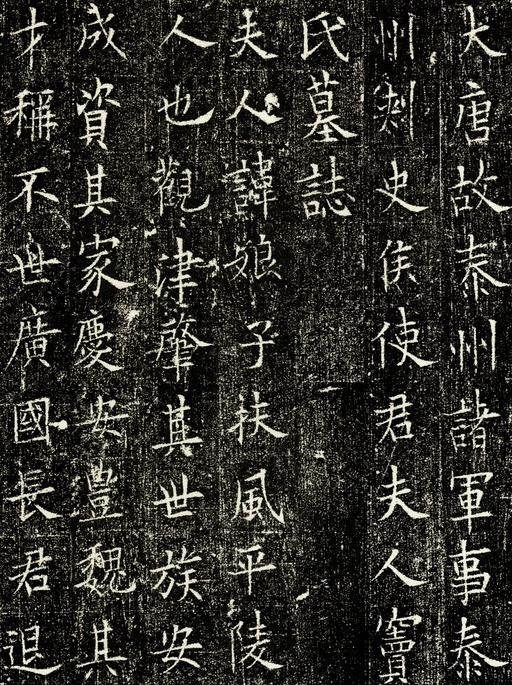 大唐故泰州諸軍事泰
州刺史侯使君夫人竇
氏墓誌
夫人諱娘子扶風平陵
人也觀津肇其世族安
成資其家慶安豐魏其
才稱不世廣國長君退